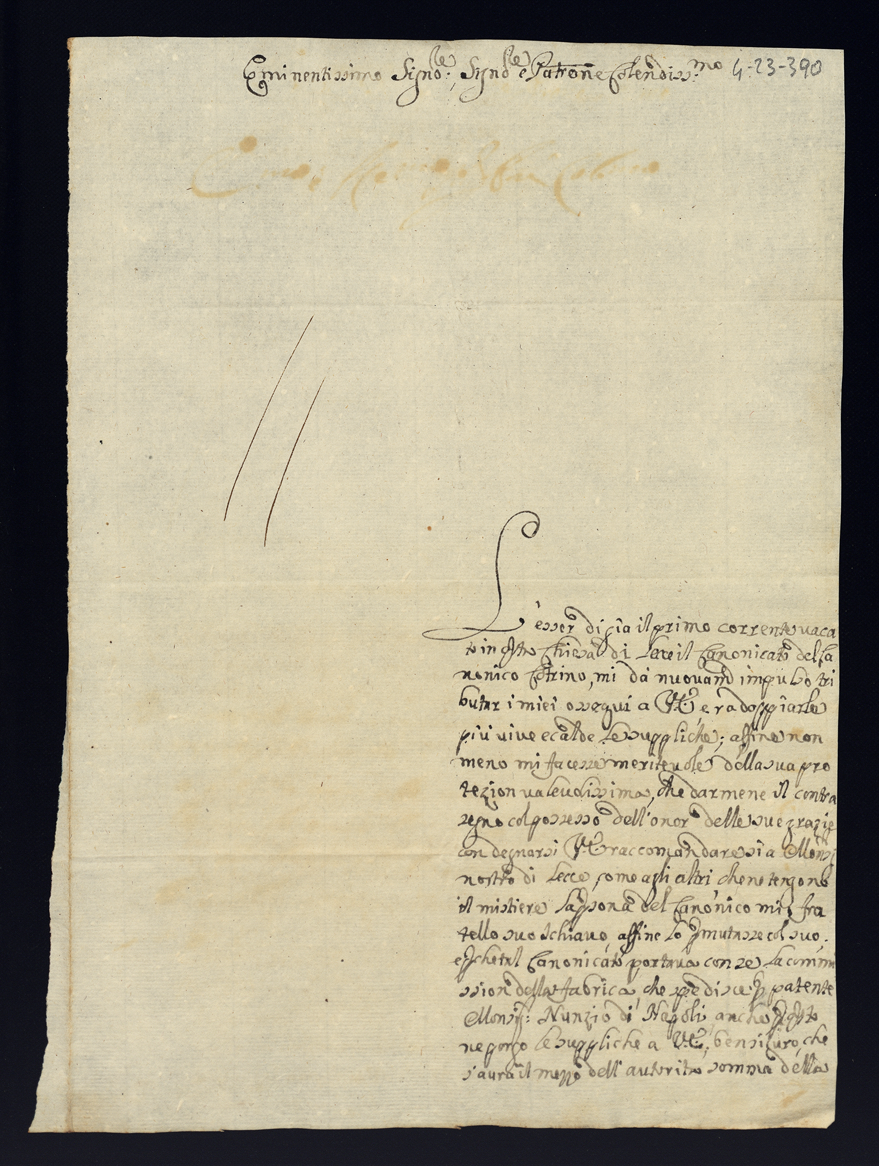 Eminentissimo Signo:re, Sig:re e Patrone Colendiss:mo 4-23-390
L'esser di già il primo corrente vaca
to in questa Chiesa di Lecce il Canonicato del Ca
nonico Cotrino, mi dà nuovam impulso tri
butar i miei ossequi a V. E. e radoppiarle
più vive e calde le suppliche; affine non
meno mi facesse meritevole della sua pro
tezion valevolissima, che darmene il contra
segno col possesso dell'onor delle sue grazie
con degnarsi V. E. raccomandaresi a Monsig
nostro di Lecce, come agli altri che ne tengono
il mistiere la persona del Canonico mio fra
tello suo Schiavo affine lo permutasse col suo.
e perche tal Canonicato portava con se la comm
ssion della fabrica, che spedisce per patente
Monsig: Nunzio di Napoli, anche per questo
ne porgo le suppliche a V. E. ben sicuro, che
s'aurà il mezzo dell'autorità somma della